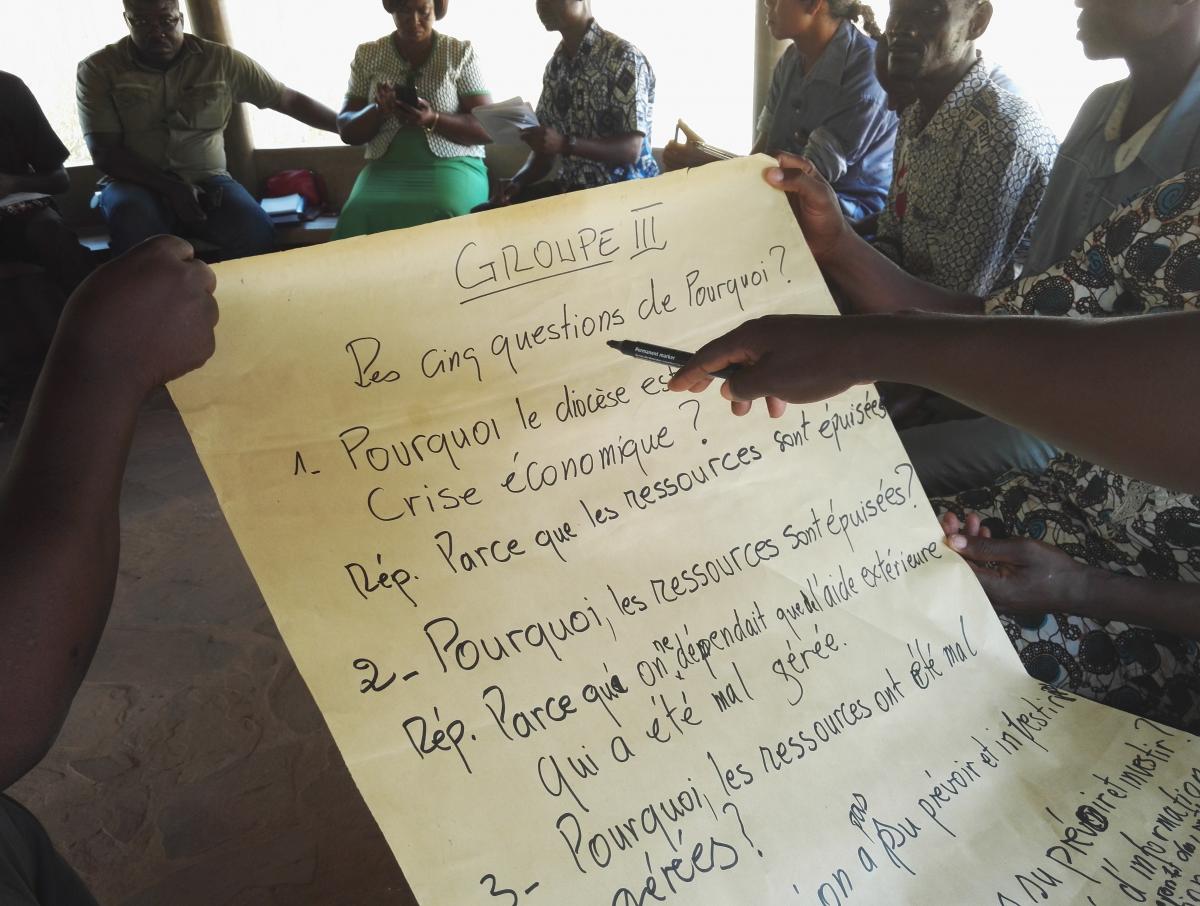 GROUPE III
Des cinq questions de Pourquoi?
Permanent marker
1- Pourquoi le diocèse est
Crise économique ?
Rép. Parce que les ressources sont épuisées
2- Pourquoi, les ressources sont épuisées?
Rép. Parce que on ne dépendait que l'aide extérieure
qui a été mal gérée.
3- Pourquoi, les ressources ont été mal
gérées?
on a pas pu prévoir et investir
su prévoir et investir ?
d'information